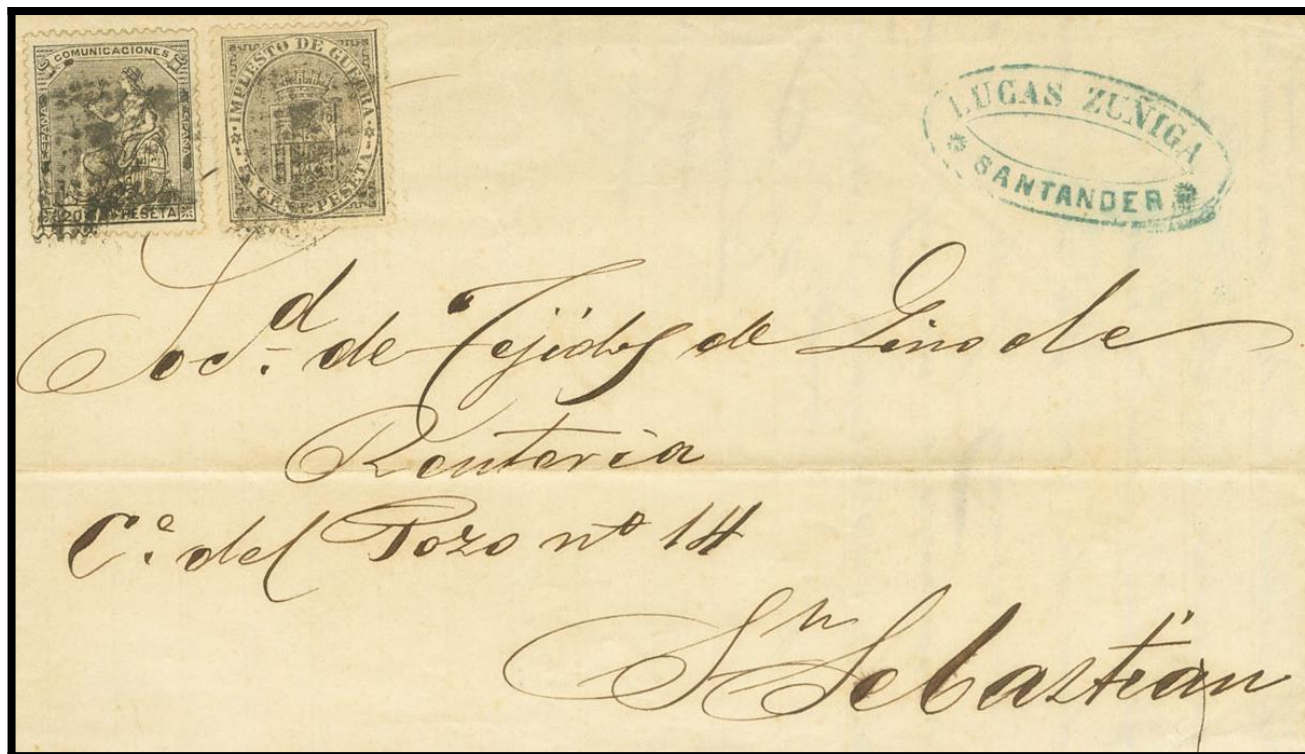 COMUNICACIONES
ESPAÑA
ESPAÑA
20 PESETA
IMPUESTO DE GUERRA
5 CENT. PESETA
LUCAS ZUÑIGA
SANTANDER
Socd. de Tejidos de Lino de
Renteria
Ce. del Pozo nº 14
Sn Sebastián